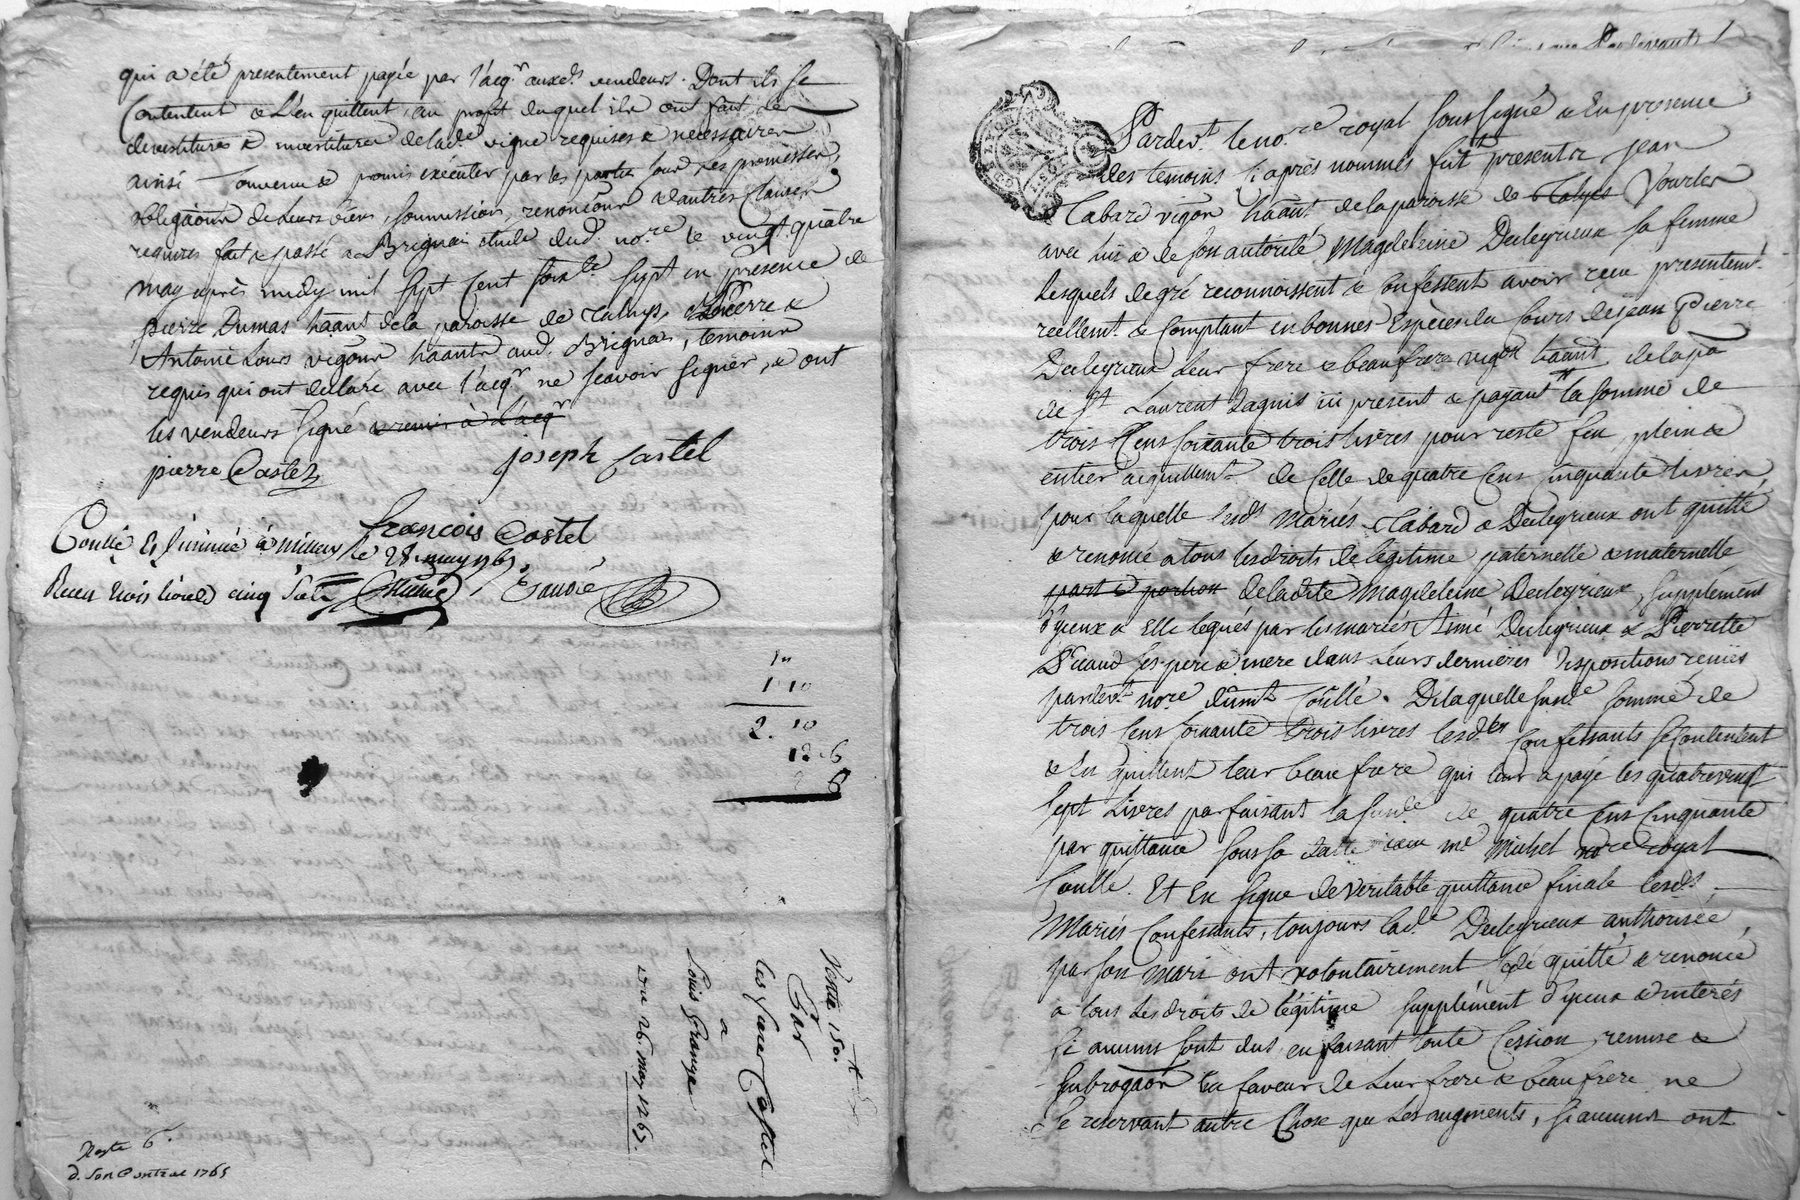 qui a été presentement payée par l'acqr auxds vendeurs. Dont ils se
Contentent & L'en quittent, au profit duquel ils ont fait de
devestitures & investitures de lade vigne requises & necessaires
ainsi Convenu & promis exécuter par les parties sous Les promesses,
obligãons de Leurs biens, soumissions, renonçõns & autres Clauses
requises fait & passé a Brignai etude dud. nore le vingt quatre
may après midy mil sept Cent soixte sept en presence de
pierre Dumas háant de la paroisse de Taluys, & Pierre &
Antoine Lours vigõns háants aud. Brignai, temoins
requis qui ont declaré avec l'acqr ne scavoir signer, & ont
les vendeurs signé
pierre Castel
joseph Castel
francois Castel
Conllé & Scinnué à Millery le 28 may 1767.
Receu trois livres cinq sols
1 10
2. 10
12 6
6
Vente 150.
Par
les freres Castel
a
Louis Granze
Du 26 may 1767.
Reste 6
d. son Contrat 1765
Pardevt le nore royal soussigné & En presence
des temoins Ci après nommés fût presents Jean
Tabard vigõn háant de la paroisse de Taluys Vourles
avec luy & de son autorité Magdeleine Decleyrieux sa femme
Lesquels de gré reconnoissent & Confessent avoir reçu presentemt
reellemt & Comptant en bonnes Especes du Cours de jean Pierre
Decleyrieux Leur frere & beau frere vigõn háant de la pã
de St Laurent Dagnis ici present & payant la somme de
trois Cens soixante trois livres pour reste feu, plein &
entier acquittemt de Celle de quatre Cens Cinquante livres,
pour laquelle lesds Mariés Tabard & Decleyrieux ont quitté
& renoncé a tous les droits de légitime paternelle & maternelle
part & portion de ladite Magdeleine Decleyrieux, supplément
d'yceux a Elle légués par les mariés Aimé Decleyrieux & Pierrette
ses pere & mere dans Leurs dernières dispositions reçues
pardevt nore Conllé. De laquelle susde somme de
trois Cens soixante trois livres lesdes Confessants se Contentent
& En quittent leur beau frere qui leur a payé les quatre vingt
sept Livres parfaisant la susde de quatre Cens Cinquante
par quittance sous sa datte reçue me Michel nore royal
Conllé. Et En signe de veritable quittance finale lesds
Mariés Confessants, toujours lade Decleyrieux authorisée
par son Mari ont volontairement cédé quitté & renoncé
a tous Les droits de légitime supplément d'yceux & interés
si aucuns sont dus, en faisant toute Cession, remise &
subrogãon En faveur de Leur frere & beau frere ne
Se reservant autre Chose que Les augments, si aucuns ont